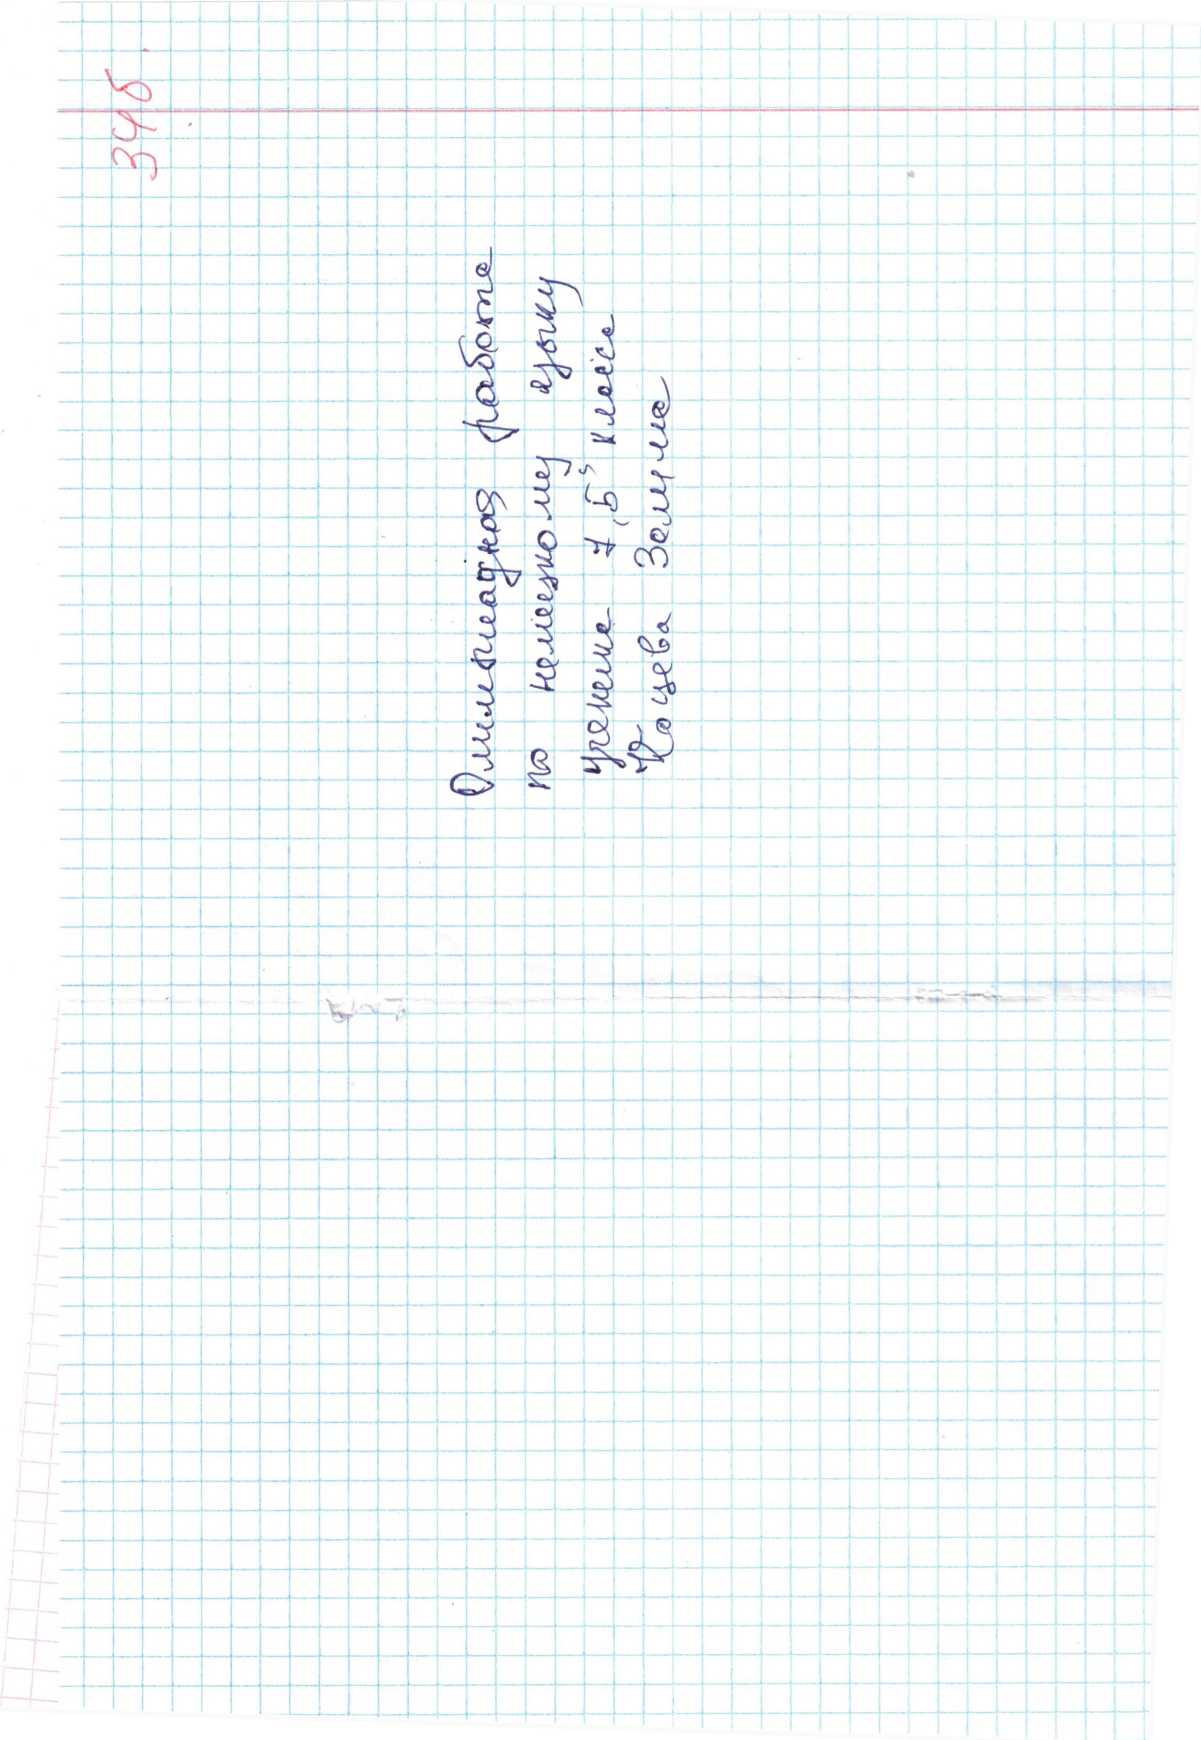 34б
Олимпиадная работа
по немецкому языку
ученика 7 „Б“ класса
Коцева Залима